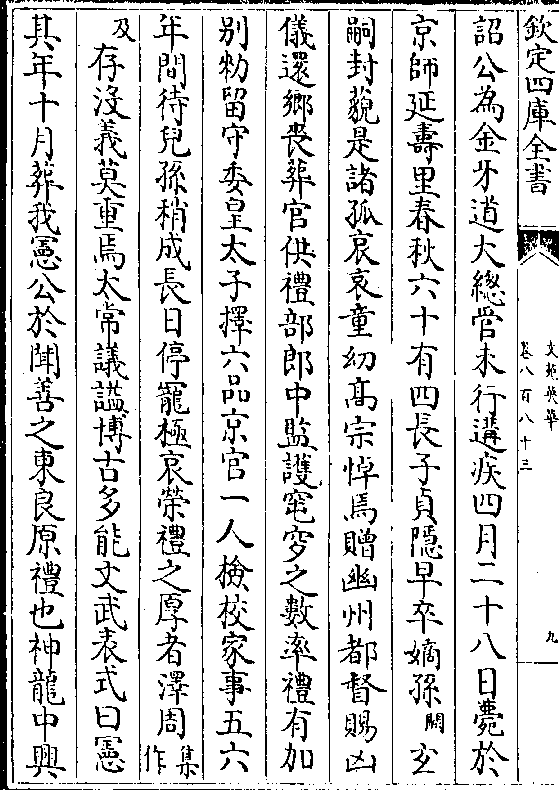 欽定四庫全書
文苑英華
卷八百八十三
九
詔公為金牙道大總管未行遘疾四月二十八日薨於
京師延壽里春秋六十有四長子貞隱早卒嫡孫闕玄
嗣封藐是諸孤哀哀童幼高宗悼焉贈幽州都督賜凶
儀還鄉喪葬官供禮部郎中監護窀穸之數率禮有加
别勑留守委皇太子擇六品京官一人檢校家事五六
年間待兒孫稍成長日停寵極哀榮禮之厚者澤周集作
及存沒義莫重焉太常議諡博古多能文武表式曰憲
其年十月葬我憲公於聞善之東良原禮也神龍中興